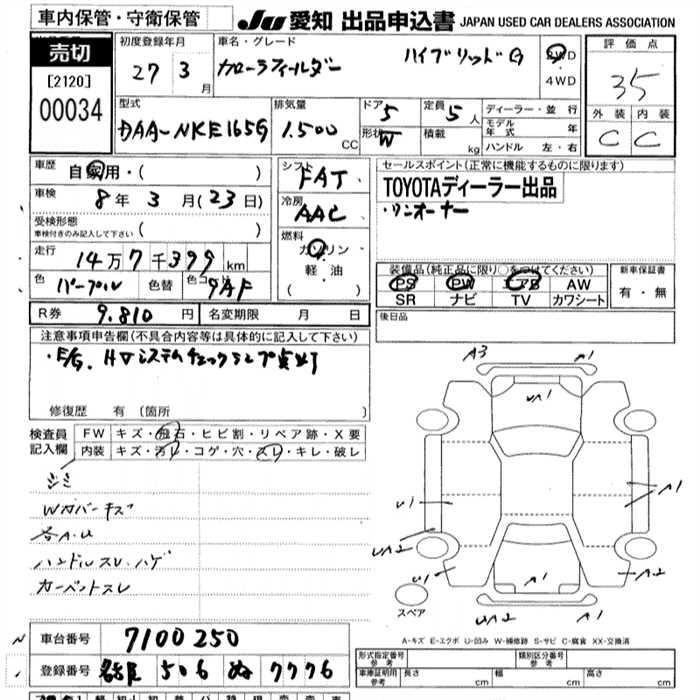 車内保管・守衛保管
JU 愛知 出品申込書 JAPAN USED CAR DEALERS ASSOCIATION
売切
[2120]
00034
初度登録年月
27 3月
車名・グレード
カローラフィールダー ハイブリッドG
2WD
4WD
評価点
3.5
外装 内装
C C
型式
DAA-NKE165G
排気量
1.500 CC
ドア 5
形状 W
定員 5人
積載 kg
ディーラー・並行
モデル年式 年
ハンドル 左・右
車歴 自家用・( )
車検 8年 3月(23日)
受検形態
車検付きのみ記入して下さい ( )
走行 14万7千399km
色 パープル 色替 色コ 9AF
シフト FAT
冷房 AAC
燃料 ガソリン
軽油
( )
セールスポイント(正常に機能するものに限ります)
TOYOTAディーラー出品
・ワンオーナー
装備品(純正品に限り○をつけてください)
PS PW エアB AW
SR ナビ TV カワシート
新車保証書
有・無
R券 9.810円 名変期限 月 日
後日品
注意事項申告欄(不具合内容等は具体的に記入して下さい)
・E/G、HVシステムチェックランプ点灯
修復歴 有 (箇所 )
検査員記入欄
FW キズ・飛石・ヒビ割・リペア跡・X要
内装 キズ・汚レ・コゲ・穴・スレ・キレ・破レ
シミ
Wカバーキズ
各A.U
ハンドルスレ、ハゲ
カーペットスレ
A3 A1
UA1
U1 A1
UA2
U1 A1 A2
A1
スペア
A-キズ E-エクボ U-凹み W-補修跡 S-サビ C-腐食 XX-交換済
車台番号 7100250
登録番号 506 ぬ 7776
形式指定番号 参考
類別区分番号 参考
車庫証明用 参考 長さ cm 幅 cm 高さ cm